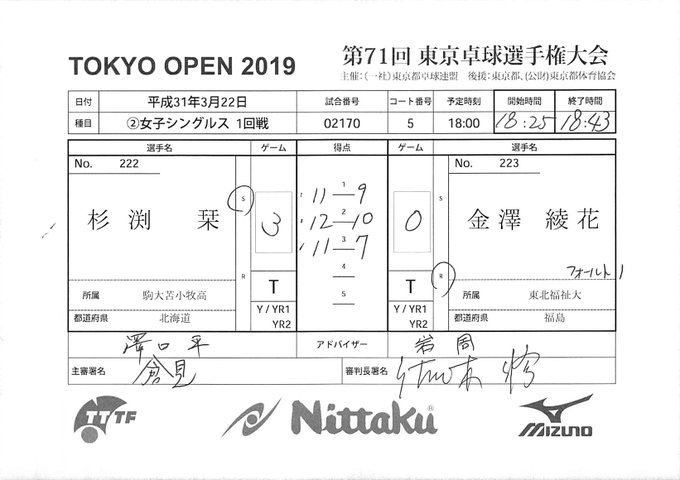 TOKYO OPEN 2019
第71回 東京卓球選手権大会
主催:(一社)東京都卓球連盟 後援:東京都、(公財)東京都体育協会
日付 平成31年3月22日 試合番号 コート番号 予定時刻 開始時間 終了時間
種目 ②女子シングルス 1回戦 02170 5 18:00 18:25 18:43
選手名 ゲーム 得点 ゲーム 選手名
No. 222
No. 223
杉渕 栞
S
R
3
11 1 9
12 2 10
11 3 7
4
5
0
S
R
金澤 綾花
フォールト 1
所属 駒大苫小牧高
T
T
所属 東北福祉大
都道府県 北海道
Y / YR1
YR2
Y / YR1
YR2
都道府県 福島
澤口 平
アドバイザー
岩岡
主審署名 倉見
審判長署名
TTTF
Nittaku®
MIZUNO